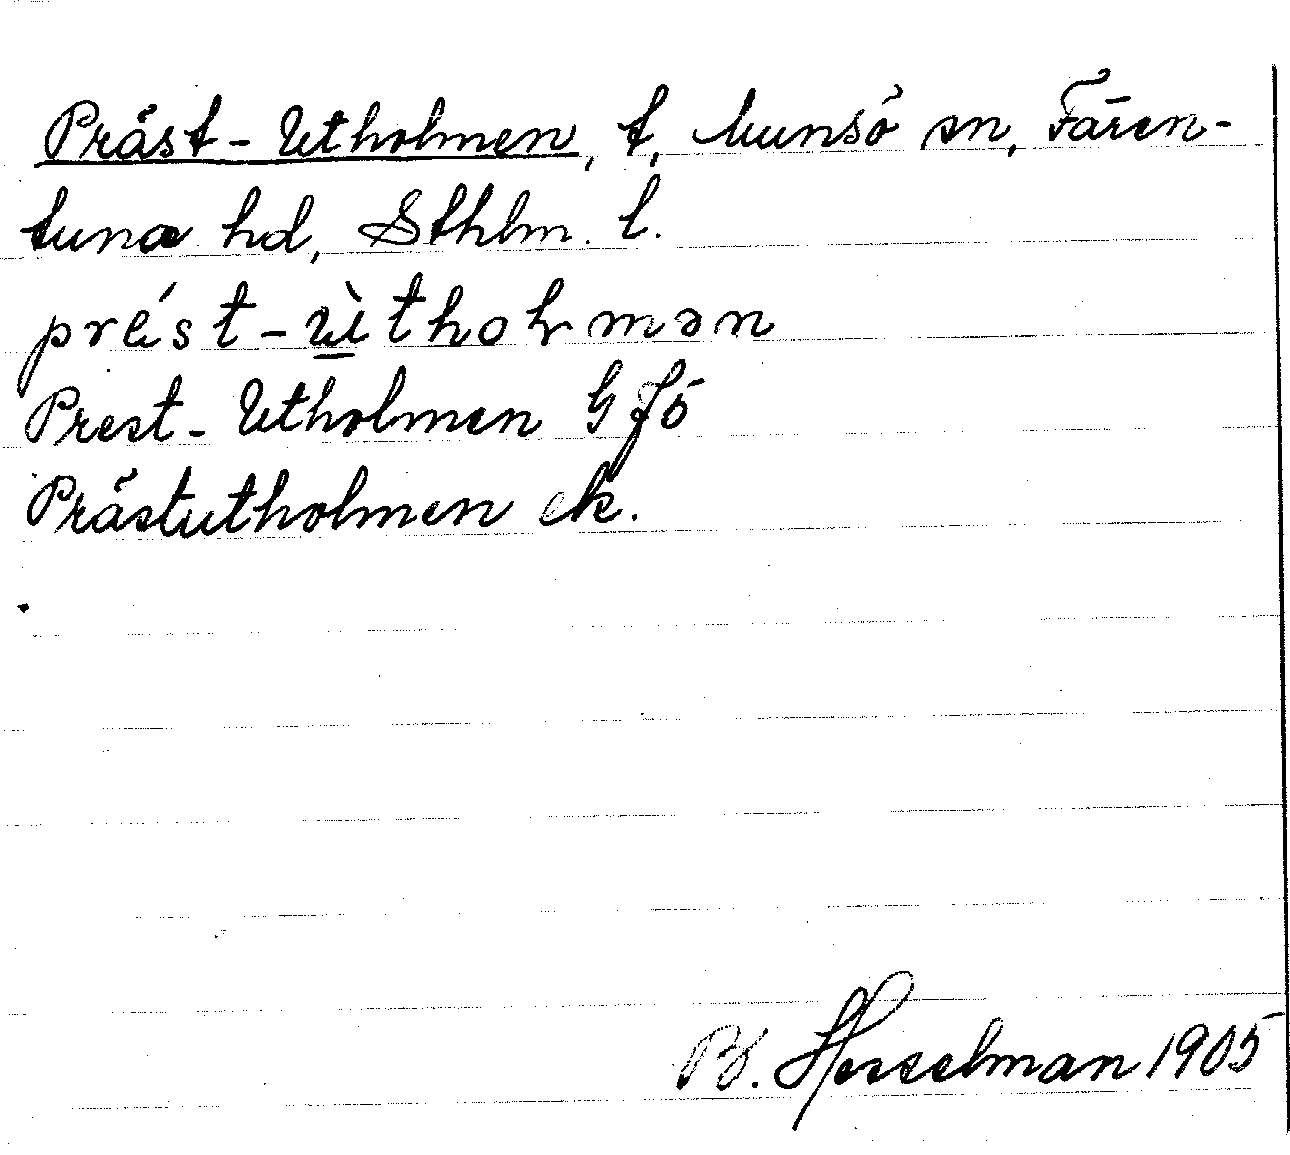 Präst-Utholmen, t, Munsö sn, Fären-
tuna hd, Sthlm. l.
prést-ùthoḷmən
Prest-Utholmen GJö
Prästutholmen ek.
B. Hesselman 1905